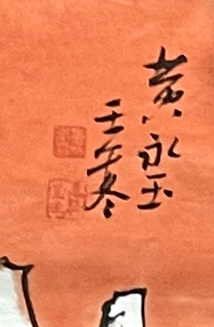 黄永玉
壬午冬